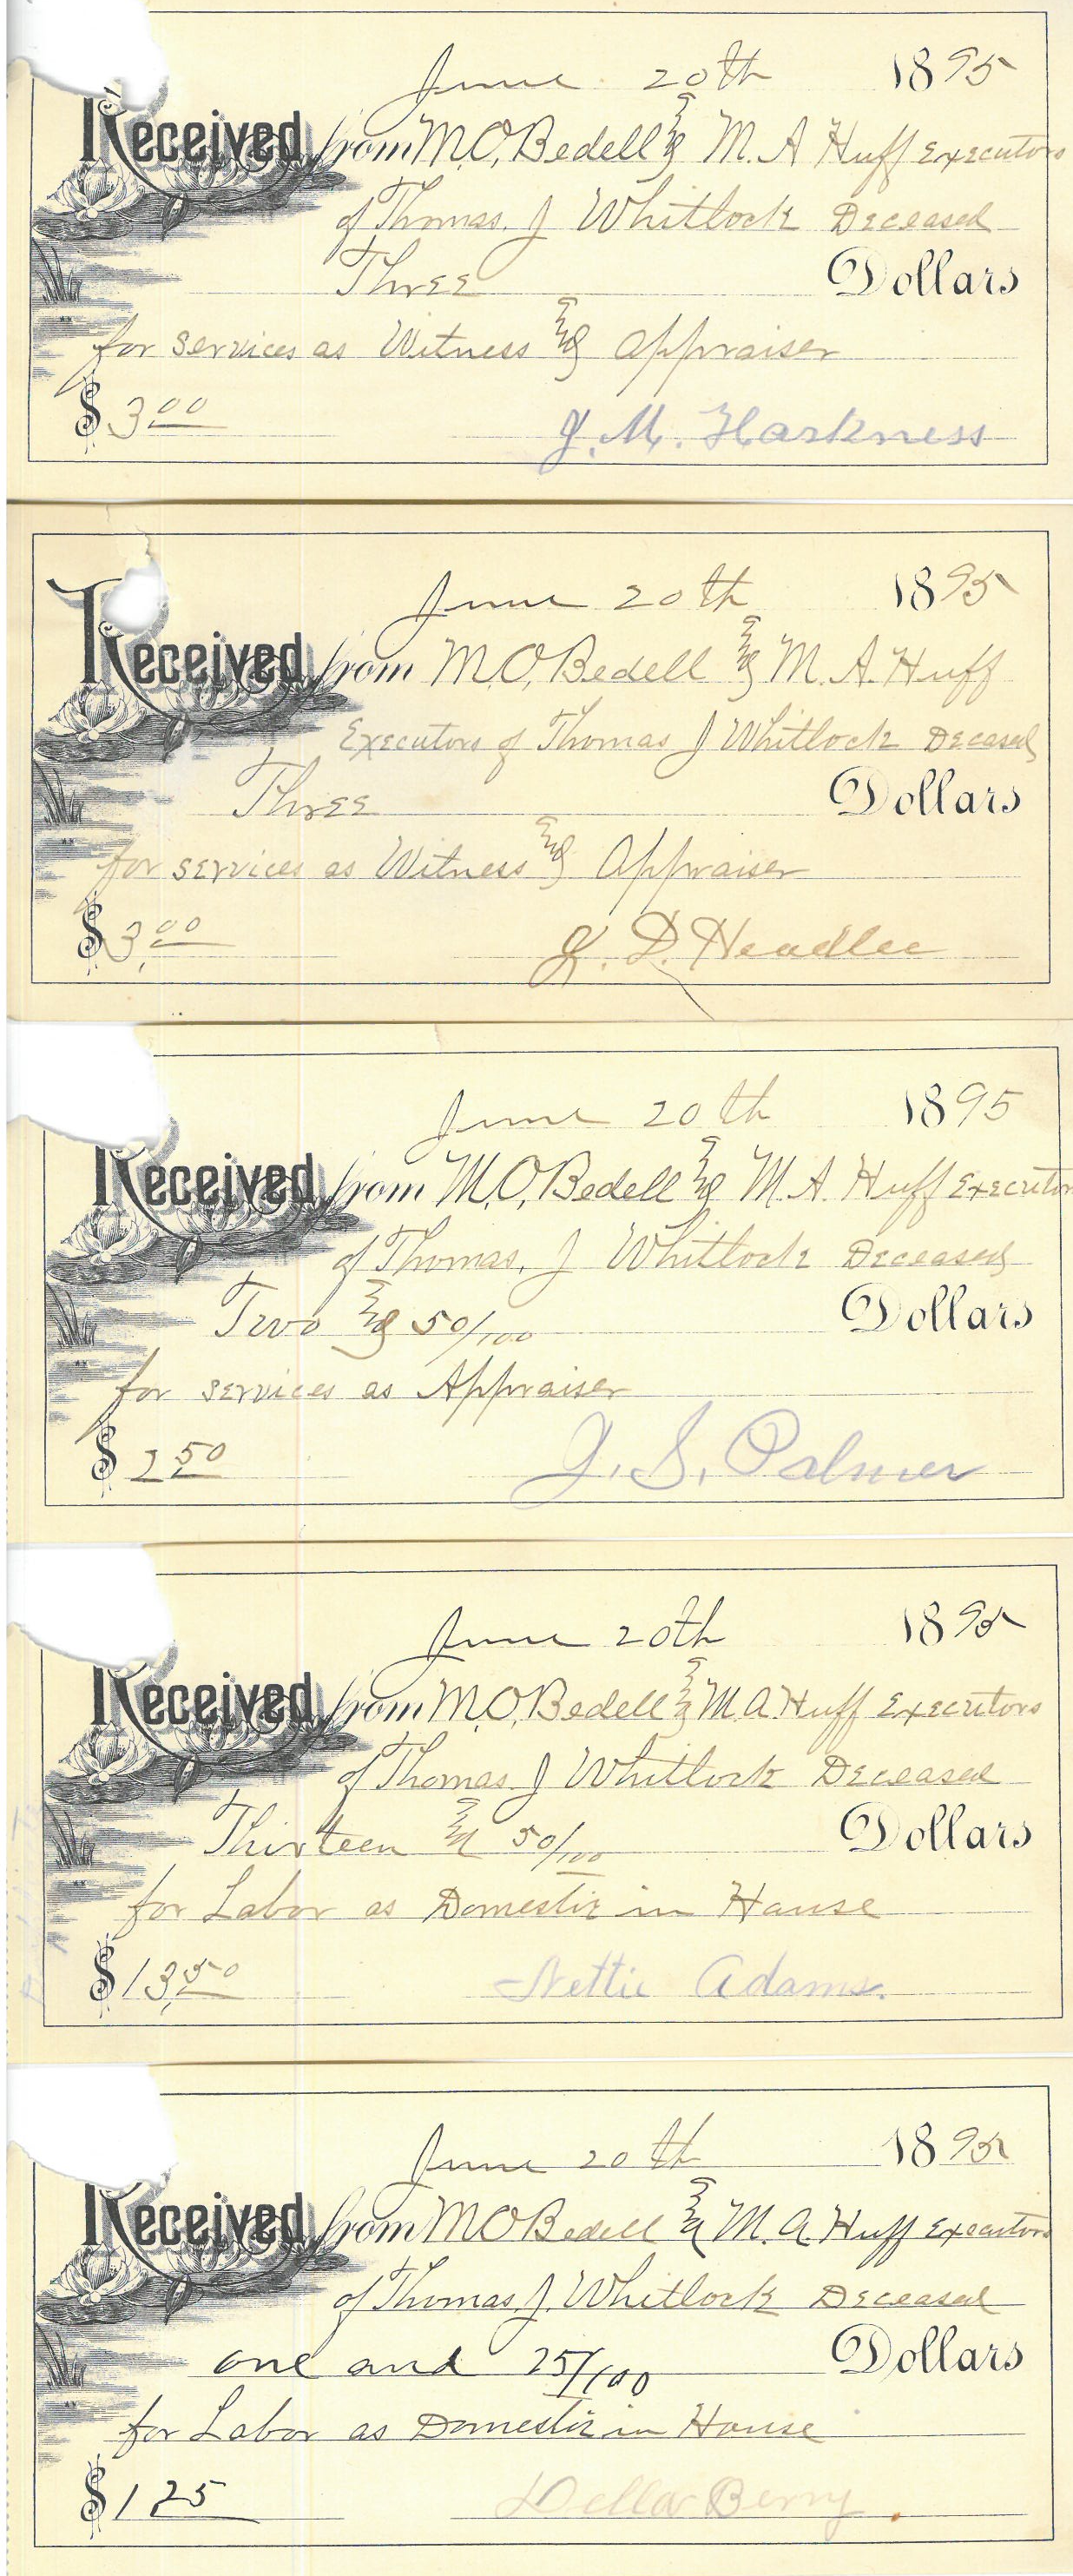 June 20th 1895
Received from M.O. Bedell & M. A Huff Executors
of Thomas. J Whitlock Deceased
Three Dollars
for services as Witness & appraiser
$ 3 00
J. M. Harkness
June 20th 1895
Received from M.O. Bedell & M. A. Huff
Executors of Thomas J Whitlock Decased
Three Dollars
for services as Witness & Appraiser
$ 3.00
J. D. Headlee
June 20th 1895
Received from M.O. Bedell & M. A. Huff Executors
of Thomas. J Whitlock Deceased
Two & 50/100 Dollars
for services as Appraiser
$ 2 50
J. S. Palmer
June 20th 1895
Received from M.O. Bedell & M A Huff Executors
of Thomas J Whitlock Deceased
Thirteen & 50/100 Dollars
for Labor as Domestic in House
$ 13.50
Nettie Adams.
June 20th 1895
Received from M O Bedell & M. A Huff Executors
of Thomas J. Whitlock Deceased
one and 25/100 Dollars
for Labor as Domestic in House
$ 1 25
Della Berry.